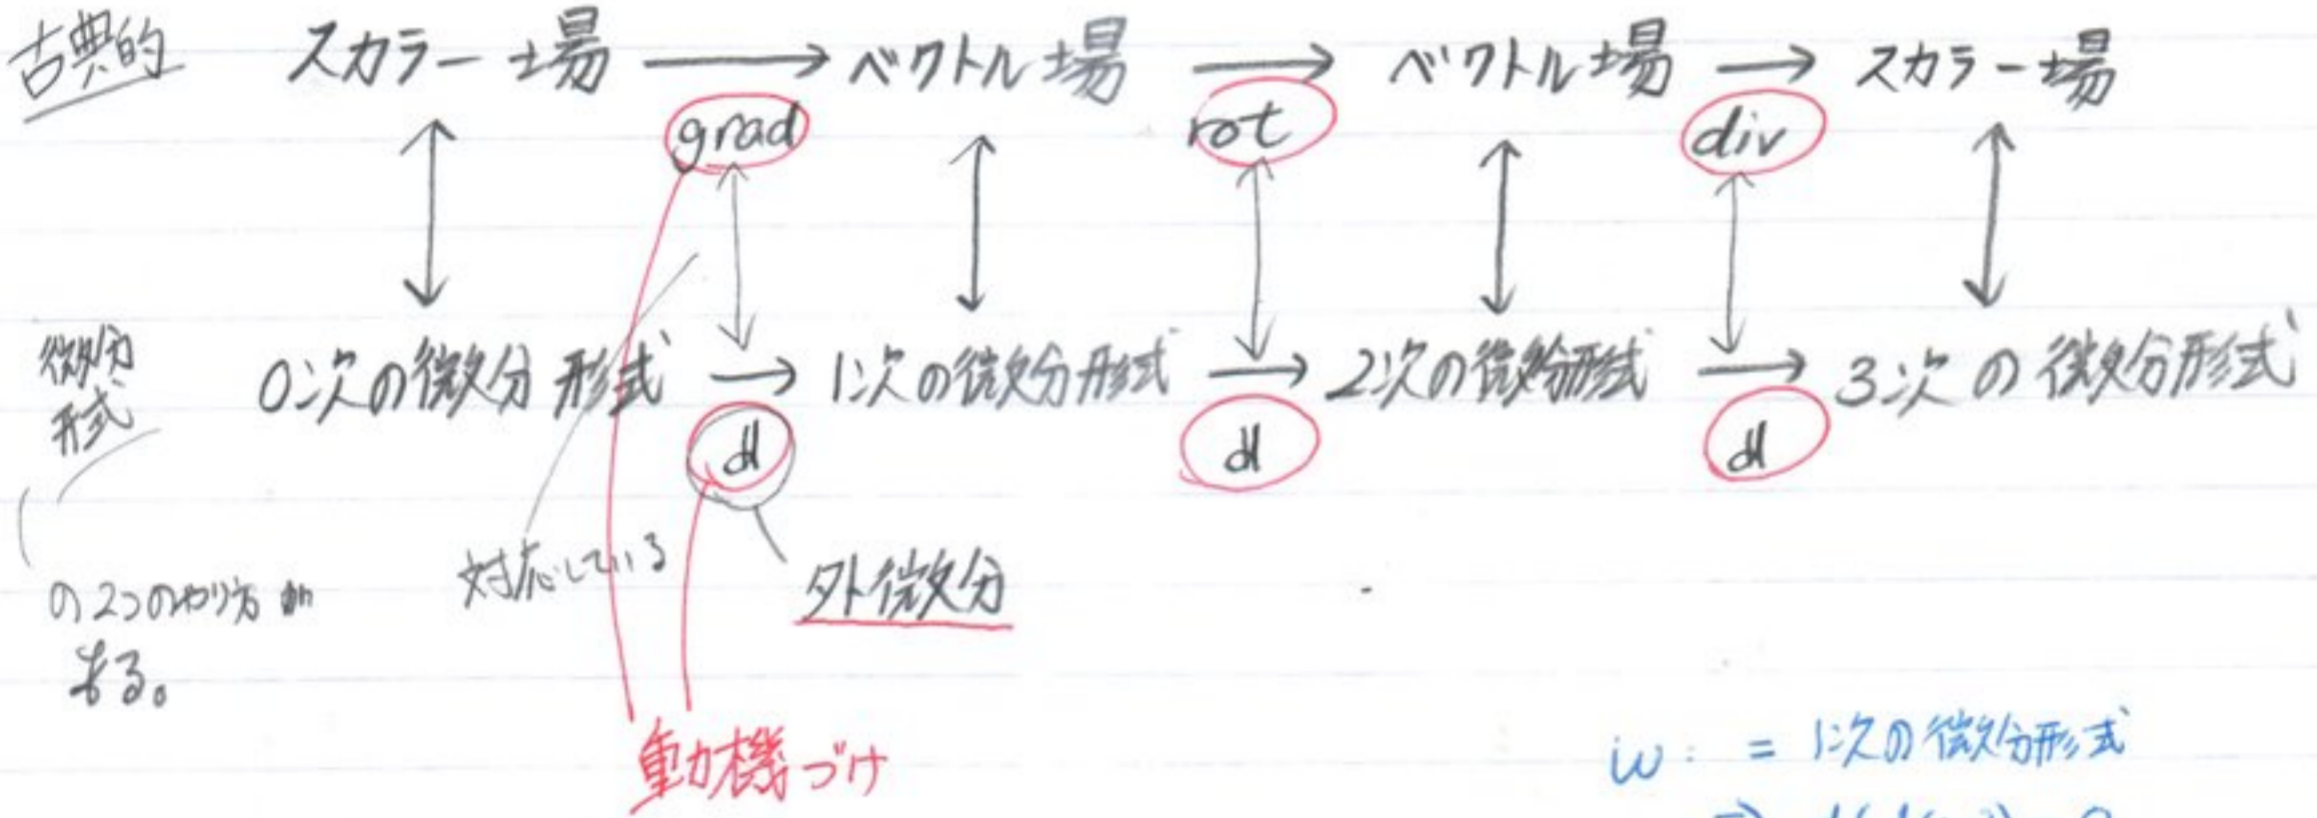 古典的 スカラー場 → ベクトル場 → ベクトル場 → スカラー場
grad rot div
微分形式 0次の微分形式 → 1次の微分形式 → 2次の微分形式 → 3次の微分形式
d d d
の2つのやり方が
ある。
対応している
外微分
動機づけ
ω : = 1次の微分形式